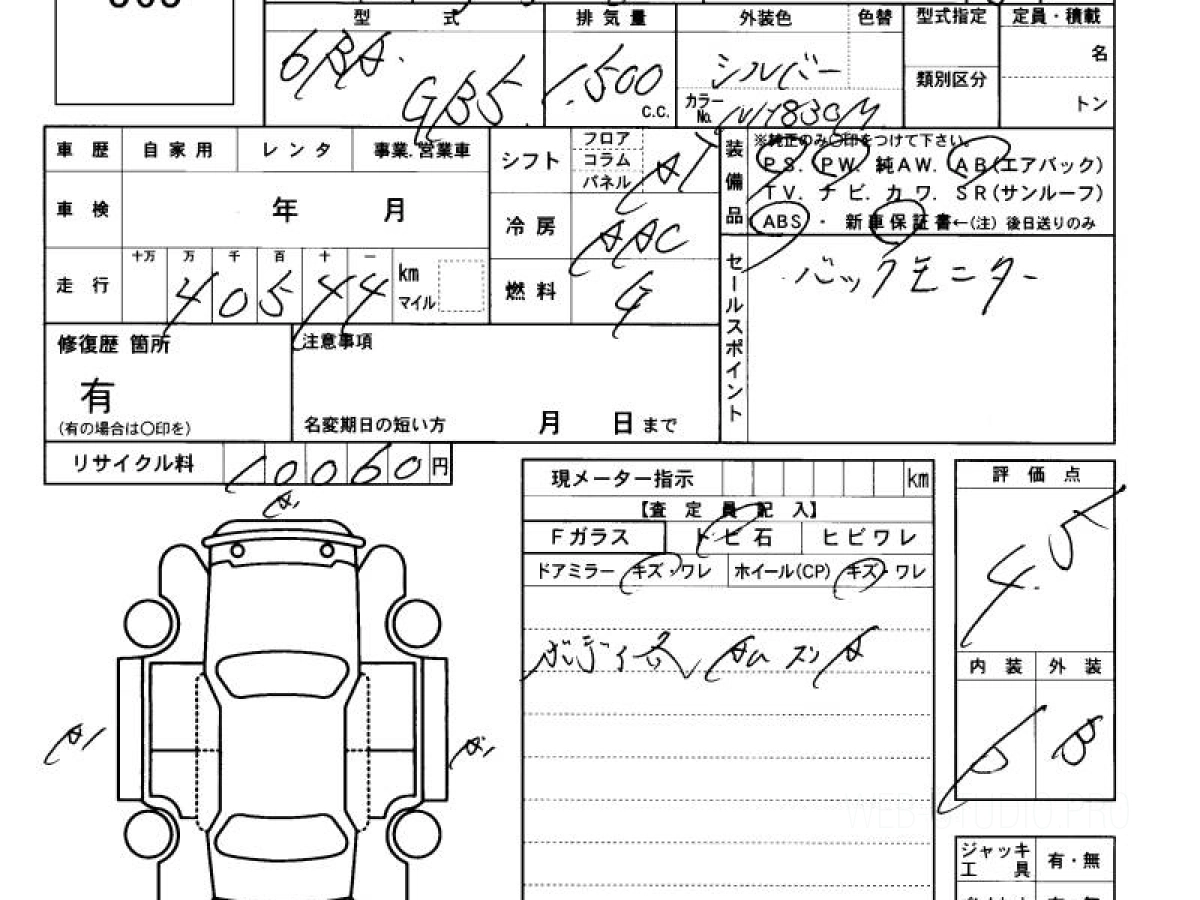 型 式 排気量 外装色 色替 型式指定 定員・積載
6BA. シルバー 名
GB5 1,500 c.c. カラーNo. NH830M 類別区分 トン
車歴 自家用 レンタ 事業.営業車
シフト フロア コラム パネル AT
車検 年 月
冷房 AAC
走行 十万 万 千 百 十 一 km マイル
40544
燃料
装備品 ※純正のみ○印をつけて下さい。
PS. PW. 純AW. AB(エアバック)
TV. ナビ. カワ. SR(サンルーフ)
ABS ・ 新車保証書←(注) 後日送りのみ
セールスポイント バックモニター
修復歴 箇所
有
(有の場合は○印を)
注意事項
名変期日の短い方 月 日まで
リサイクル料 10060円
現メーター指示 km
【査 定 員 記 入】
Fガラス トビ石 ヒビワレ
ドアミラー キズ・ワレ ホイール(CP) キズ・ワレ
評 価 点
4.5
内 装 外 装
B B
A1
A1 A1
ジャッキ 有・無
工 具
WEB-STUDIO.PRO